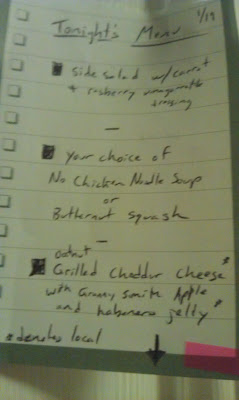 1/19
Tonight's Menu
side salad w/carrot
+ rasberry vinagrette
dressing
—
your choice of
No Chicken Noodle Soup
or
Butternut squash
—
oatnut
Grilled Cheddar Cheese*
with Granny Smith Apple
and habanero jelly*
* denotes local